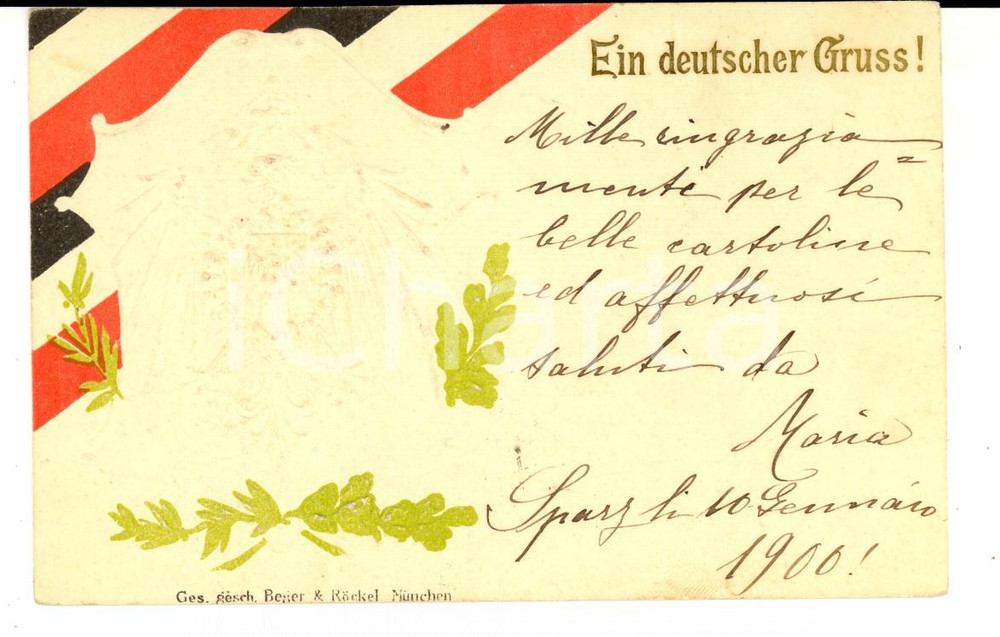 Ein deutscher Gruss!
Mille ringrazia=
menti per le
belle cartoline
ed affettuosi
saluti da
Maria
li 10 Gennáio
1900!
iCharta
Ges. gesch. Beger & Röckel München